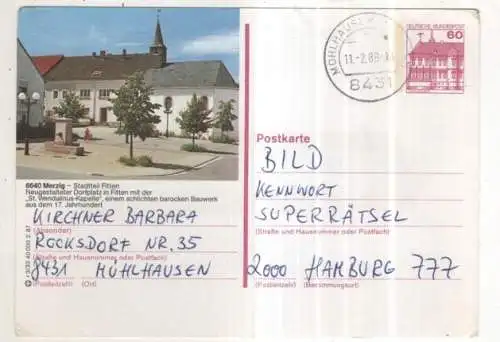 MÜHLHAUSEN
11.-2.88
8431
DEUTSCHE BUNDESPOST
60
6640 Merzig – Stadtteil Fitten
Neugestalteter Dorfplatz in Fitten mit der
„St. Wendalinus-Kapelle", einem schlichten barocken Bauwerk
aus dem 17. Jahrhundert
KIRCHNER BARBARA
(Absender)
ROCKSDORF NR. 35
(Straße und Hausnummer oder Postfach)
8431 MÜHLHAUSEN
(Postleitzahl) (Ort)
Postkarte
BILD
KENNWORT
SUPERRÄTSEL
(Straße und Hausnummer oder Postfach)
2000 HAMBURG 777
(Postleitzahl) (Bestimmungsort)